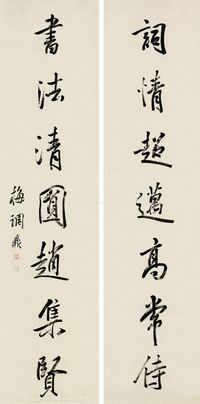 詞情超邁高常侍
書法清圓趙集賢
梅調鼎